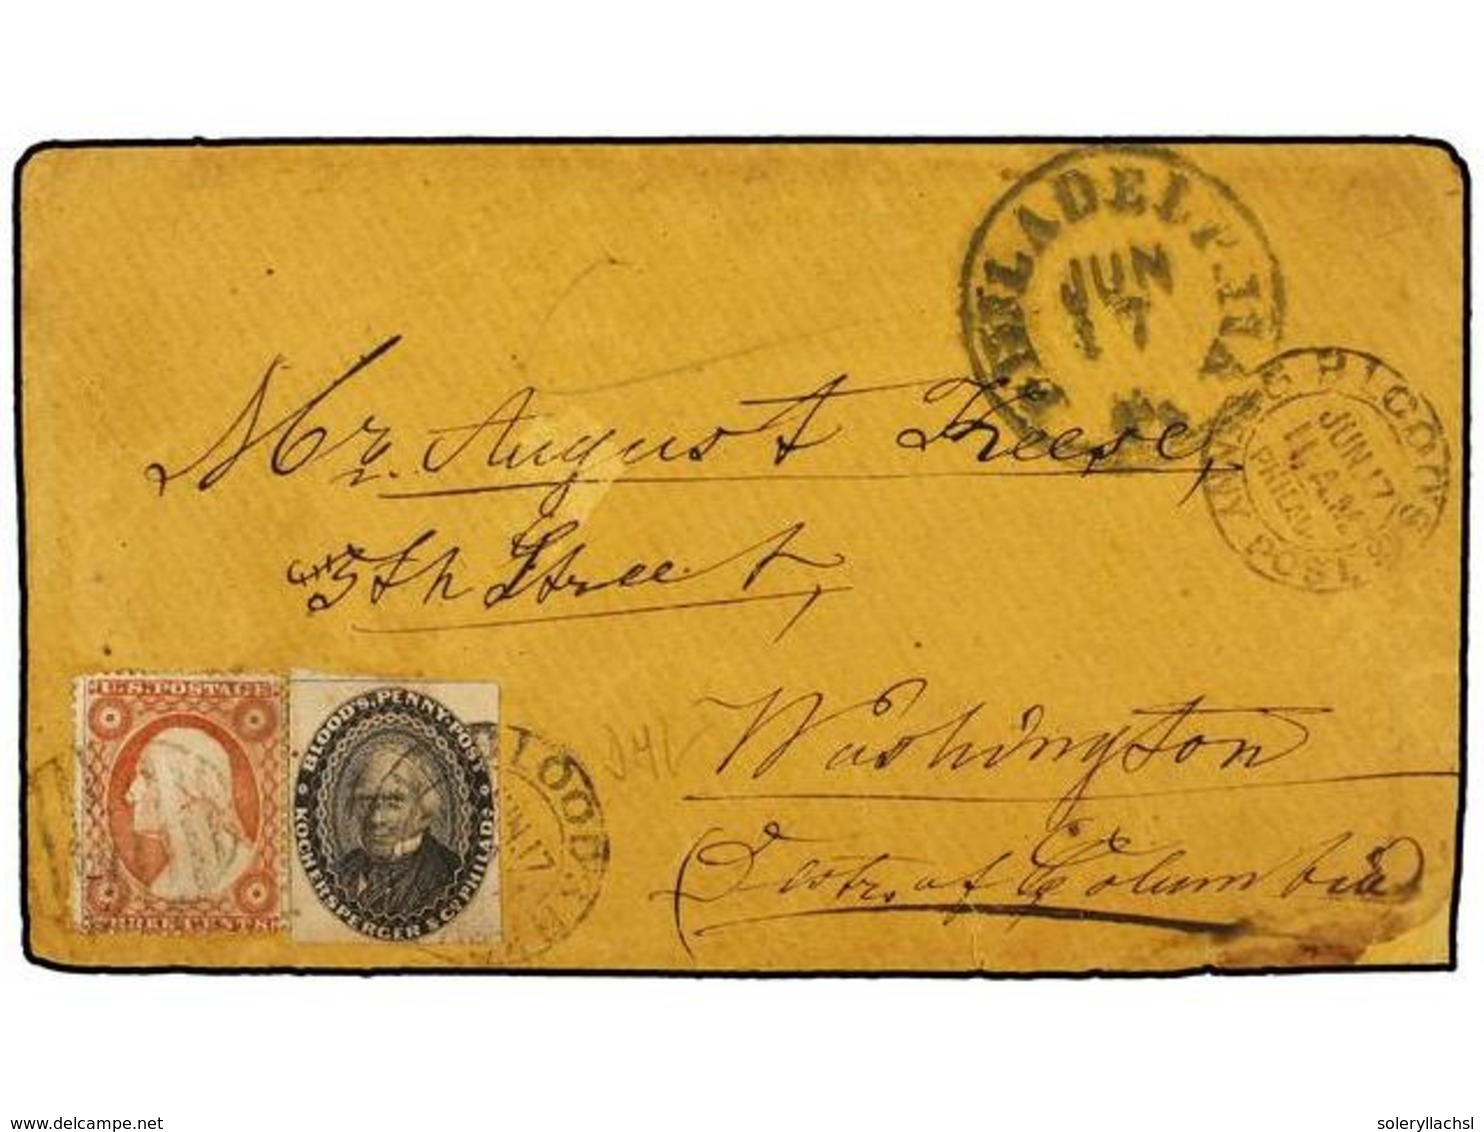 PHILADELPHIA
JUN
17
BLOOD'S
JUN 17
11 A.M
PHILADA
POST
Mr. August Freese,
5th Street,
Washington
(Distr. of Columbia)
U.S. POSTAGE
THREE CENTS
BLOOD'S PENNY POST
KOCHERSPERGER & CO. PHILADA.
BLOOD'S
JUN 17
www.delcampe.net
soleryllachsl